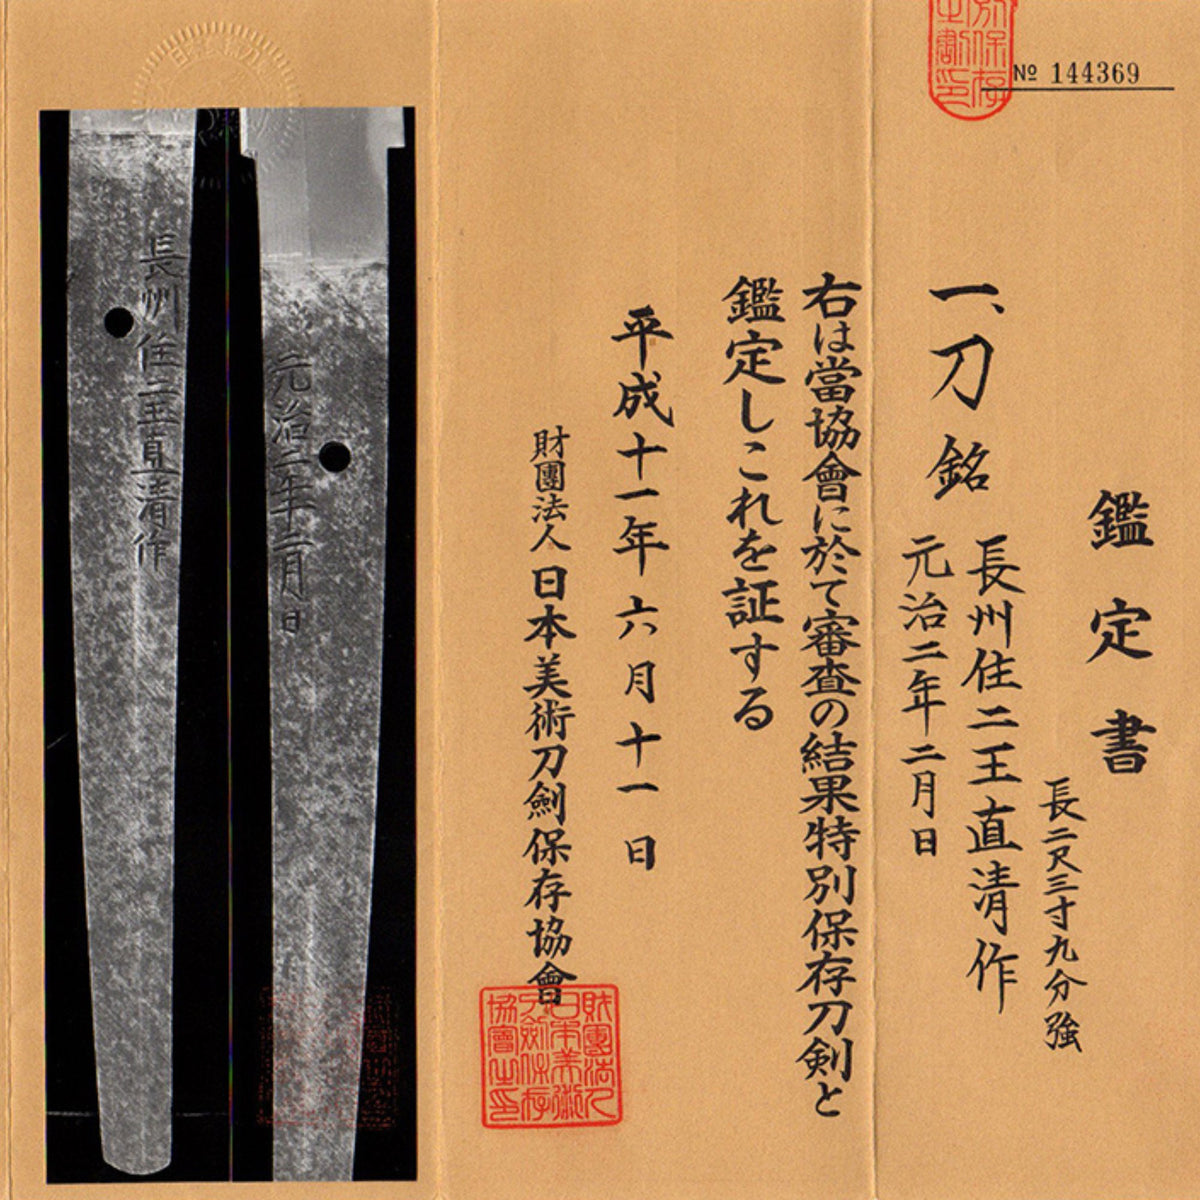 № 144369
鑑定書
長二尺三寸九分強
一、刀 銘 長州住二王直清作
元治二年二月日
右は當協會に於て審査の結果特別保存刀剣と
鑑定しこれを証する
平成十一年六月十一日
財團法人 日本美術刀劍保存協會
財團法人
日本美術
刀劍保存
協會之印
元治二年二月日
長州住二王直清作